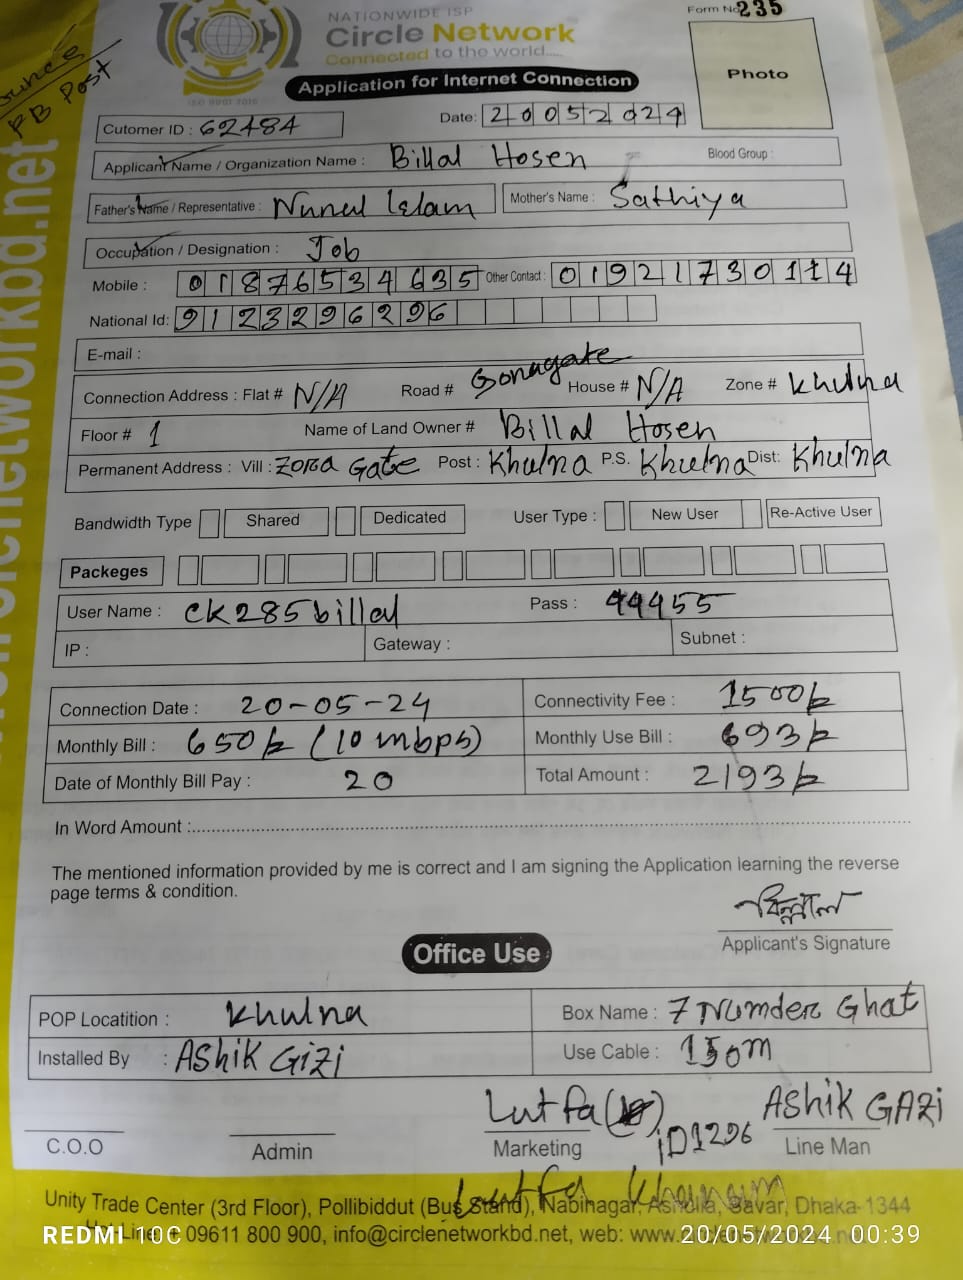 NATIONWIDE ISP
Form No. 235
Circle Network
Connected to the world.....
ISO 9001 2015
PB Post
Application for Internet Connection
Photo
Cutomer ID : 62484
Date: 20052024
Applicant Name / Organization Name : Billal Hosen
Blood Group :
Father's Name / Representative : Nurul Islam
Mother's Name : Sathiya
Occupation / Designation : Job
Mobile : 01876534635
Other Contact : 01921730114
National Id: 9123296296
E-mail :
Connection Address : Flat # N/A Road # Sonagate House # N/A Zone # Khulna
Floor # 1 Name of Land Owner # Billal Hosen
Permanent Address : Vill : Gate Post : Khulna P.S. Khulna Dist: Khulna
Bandwidth Type Shared Dedicated User Type : New User Re-Active User
Packeges
User Name : ck285billal Pass : 44455
IP : Gateway : Subnet :
Connection Date : 20-05-24 Connectivity Fee : 1500/=
Monthly Bill : 650/= (10 mbps) Monthly Use Bill : 693/=
Date of Monthly Bill Pay : 20 Total Amount : 2193/=
In Word Amount :
The mentioned information provided by me is correct and I am signing the Application learning the reverse
page terms & condition.
বিল্লাল
Applicant's Signature
Office Use
POP Locatition : Khulna Box Name : 7 Numder Ghat
Installed By : ASHiK GiZi Use Cable : 150m
Lutfa iD1296 ASHiK GAZi
C.O.O Admin Marketing Line Man
Lutfa Khanam
Unity Trade Center (3rd Floor), Pollibiddut (Bus Stand), Nabinagar, Ashulia, Savar, Dhaka-1344
Hot Line : 09611 800 900, info@circlenetworkbd.net, web: www.circlenetworkbd.net
REDMI 10C 20/05/2024 00:39